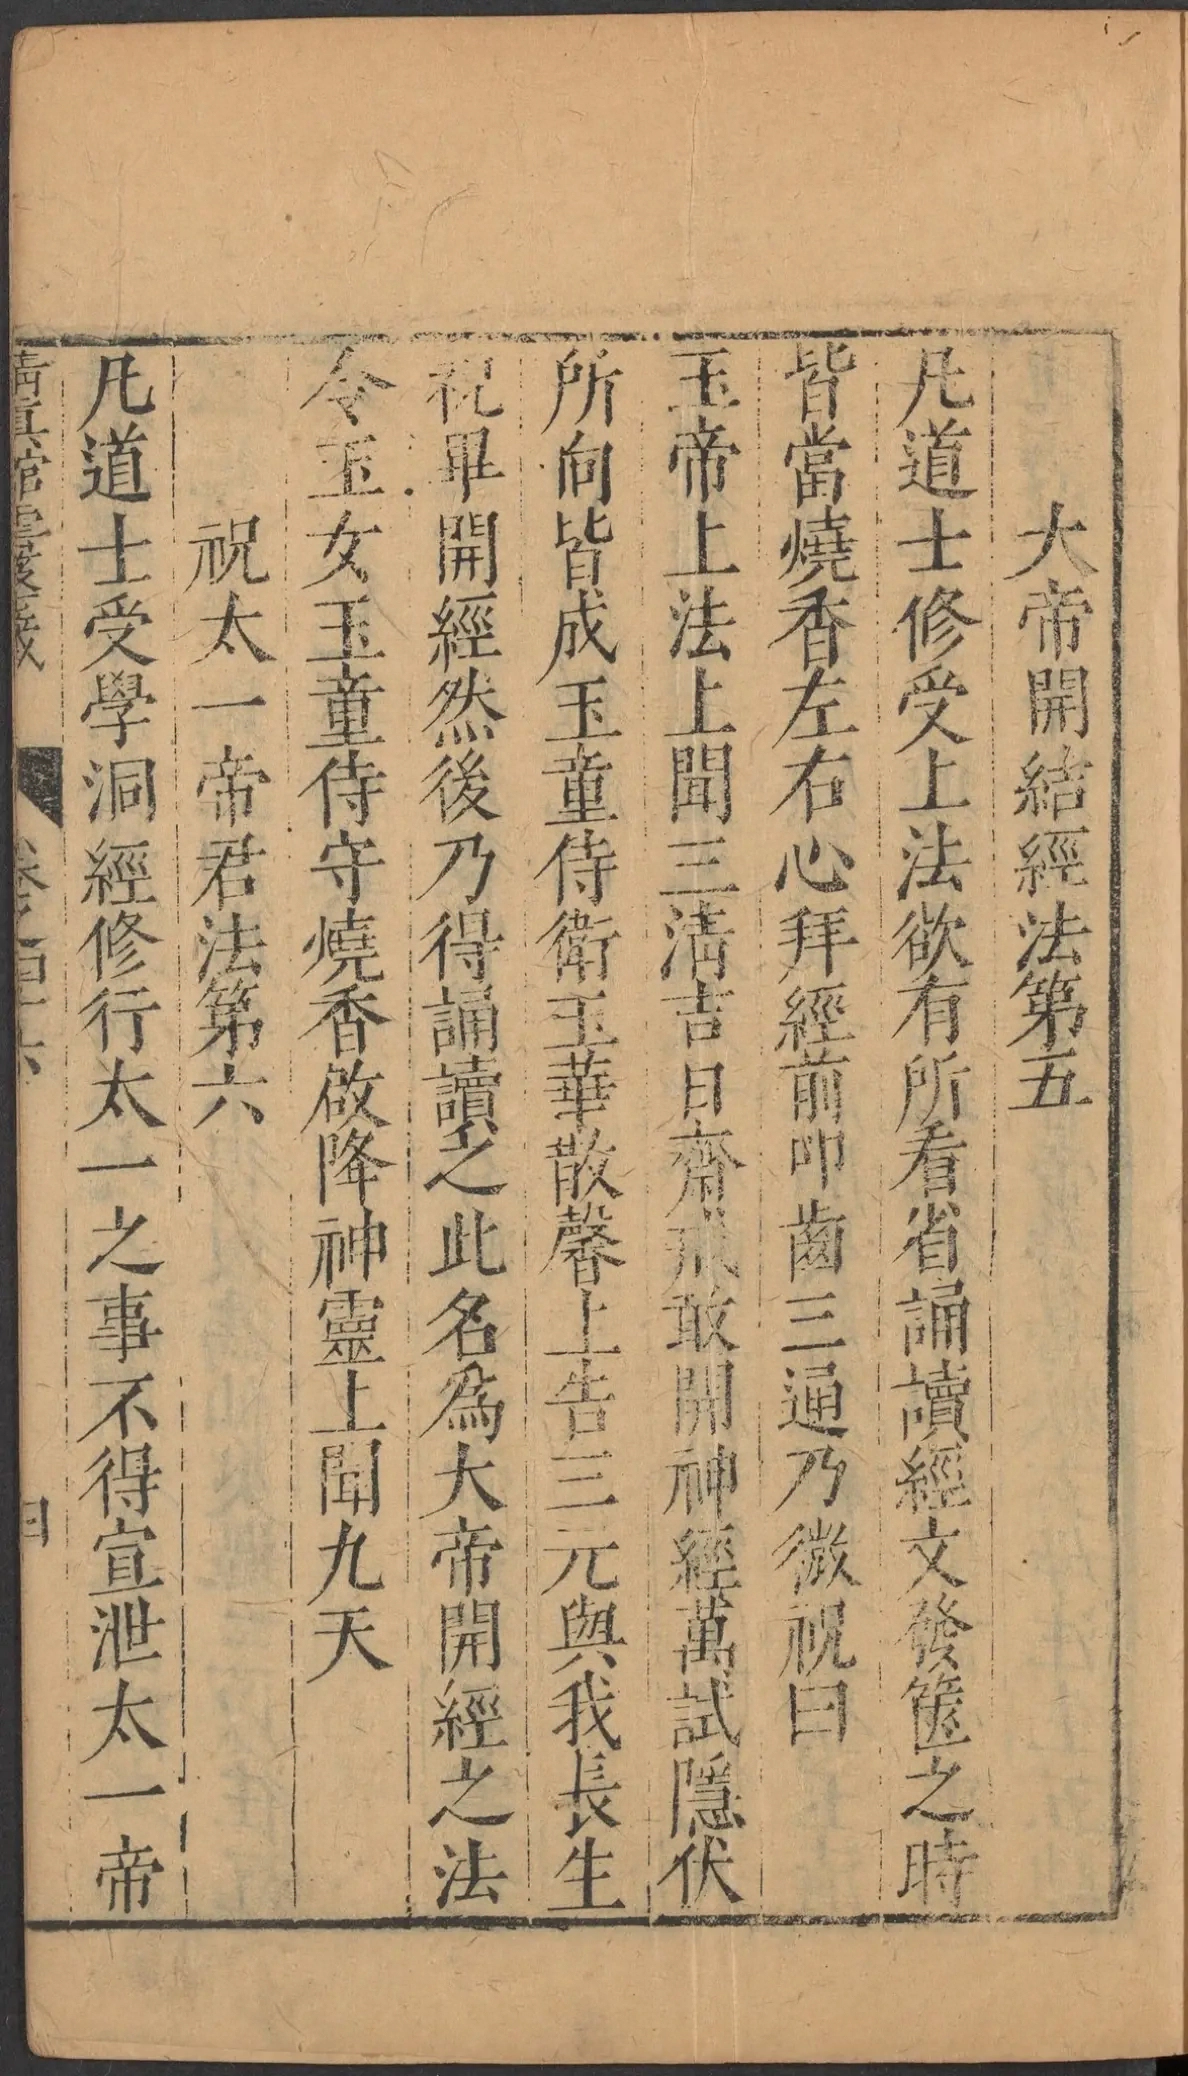 大帝開結經法第五
凡道士修受上法欲有所看省誦讀經文發篋之時
皆當燒香左右心拜經前叩齒三通乃微祝曰
玉帝上法上聞三清吉日齋戒敢開神經萬試隱伏
所向皆成玉童侍衛玉華散馨上告三元與我長生
祝畢開經然後乃得誦讀之此名為大帝開經之法
令玉女玉童侍守燒香啟降神靈上聞九天
祝太一帝君法第六
凡道士受學洞經修行太一之事不得宣泄太一帝
清真館雲笈七籤 卷之四十六 四